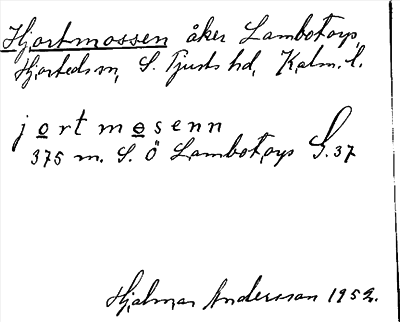 Hjortmossen åker Lambotorp,
Hjorteds sn, S. Tjusts hd, Kalm. l.
jort mosenn
375 m. S. Ö Lambotorps S. 37
Hjalmar Andersson 1952.